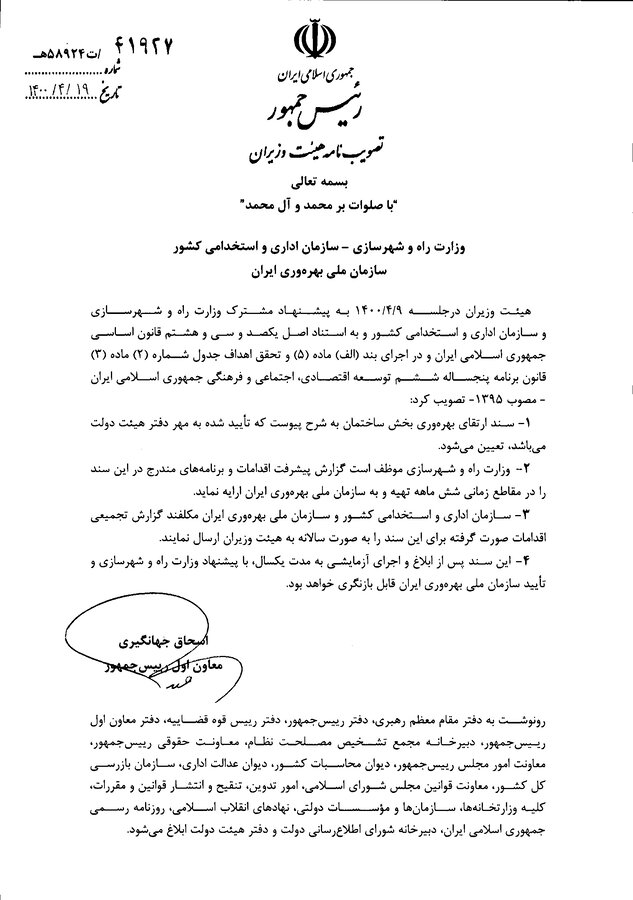 ۴۱۹۲۷ /ت۵۸۹۲۴هـ
شماره
تاریخ ۱۴۰۰/۴/۱۹
جمهوری اسلامی ایران
رئیس جمهور
تصویب نامه هیئت وزیران
بسمه تعالی
"با صلوات بر محمد و آل محمد"
وزارت راه و شهرسازی – سازمان اداری و استخدامی کشور
سازمان ملی بهره‌وری ایران
هیئت وزیران درجلسه ۱۴۰۰/۴/۹ به پیشنهاد مشترک وزارت راه و شهرسازی
و سازمان اداری و استخدامی کشور و به استناد اصل یکصد و سی و هشتم قانون اساسی
جمهوری اسلامی ایران و در اجرای بند (الف) ماده (۵) و تحقق اهداف جدول شماره (۲) ماده (۳)
قانون برنامه پنجساله ششم توسعه اقتصادی، اجتماعی و فرهنگی جمهوری اسلامی ایران
- مصوب ۱۳۹۵- تصویب کرد:
۱- سند ارتقای بهره‌وری بخش ساختمان به شرح پیوست که تأیید شده به مهر دفتر هیئت دولت
می‌باشد، تعیین می‌شود.
۲- وزارت راه و شهرسازی موظف است گزارش پیشرفت اقدامات و برنامه‌های مندرج در این سند
را در مقاطع زمانی شش ماهه تهیه و به سازمان ملی بهره‌وری ایران ارایه نماید.
۳- سازمان اداری و استخدامی کشور و سازمان ملی بهره‌وری ایران مکلفند گزارش تجمیعی
اقدامات صورت گرفته برای این سند را به صورت سالانه به هیئت وزیران ارسال نمایند.
۴- این سند پس از ابلاغ و اجرای آزمایشی به مدت یکسال، با پیشنهاد وزارت راه و شهرسازی و
تأیید سازمان ملی بهره‌وری ایران قابل بازنگری خواهد بود.
اسحاق جهانگیری
معاون اول رییس‌جمهور
رونوشت به دفتر مقام معظم رهبری، دفتر رییس‌جمهور، دفتر رییس قوه قضاییه، دفتر معاون اول
رییس‌جمهور، دبیرخانه مجمع تشخیص مصلحت نظام، معاونت حقوقی رییس‌جمهور،
معاونت امور مجلس رییس‌جمهور، دیوان محاسبات کشور، دیوان عدالت اداری، سازمان بازرسی
کل کشور، معاونت قوانین مجلس شورای اسلامی، امور تدوین، تنقیح و انتشار قوانین و مقررات،
کلیه وزارتخانه‌ها، سازمان‌ها و مؤسسات دولتی، نهادهای انقلاب اسلامی، روزنامه رسمی
جمهوری اسلامی ایران، دبیرخانه شورای اطلاع‌رسانی دولت و دفتر هیئت دولت ابلاغ می‌شود.